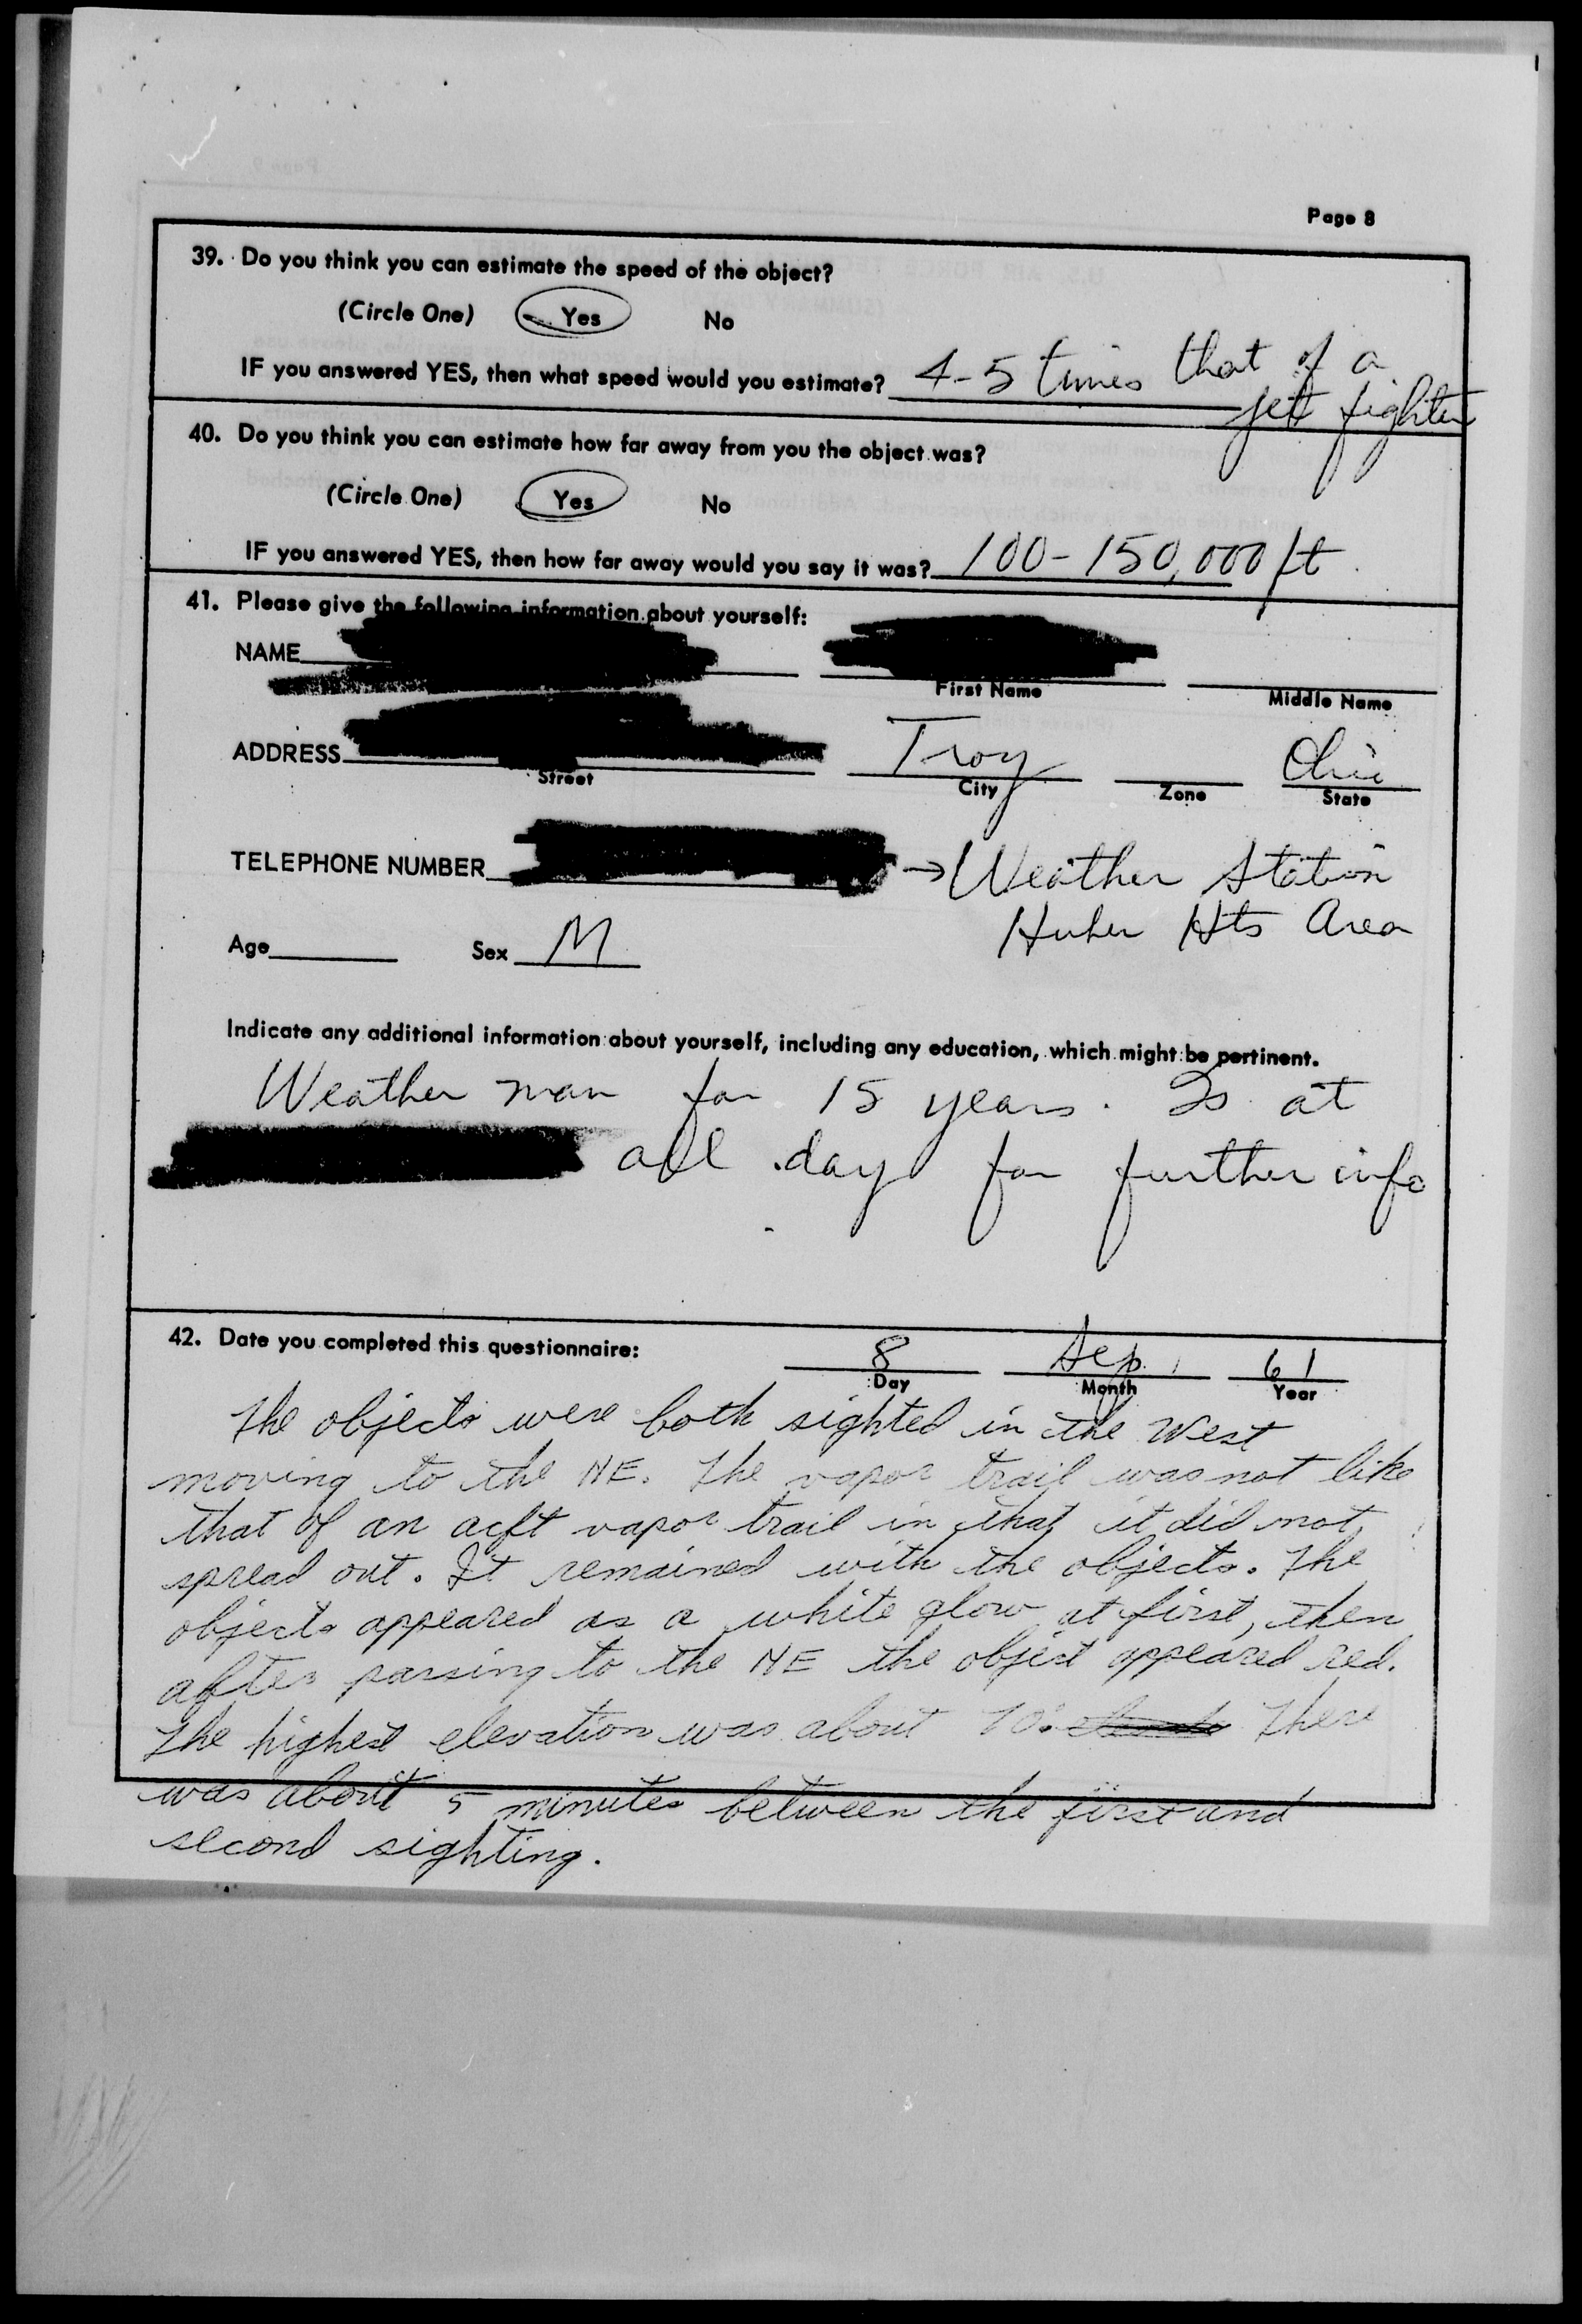 Page 8
39. Do you think you can estimate the speed of the object?
(Circle One) Yes No
IF you answered YES, then what speed would you estimate? 4-5 times that of a
jet fighter
40. Do you think you can estimate how far away from you the object was?
(Circle One) Yes No
IF you answered YES, then how far away would you say it was? 100-150,000 ft
41. Please give the following information about yourself:
NAME
First Name Middle Name
ADDRESS Troy Ohio
Street City Zone State
TELEPHONE NUMBER → Weather Station
Huber Hts Area
Age Sex M
Indicate any additional information about yourself, including any education, which might be pertinent.
Weather man for 15 years. Is at
all day for further info
42. Date you completed this questionnaire: 8 Sep 61
Day Month Year
The objects were both sighted in the West
moving to the NE. The vapor trail was not like
that of an acft vapor trail in that it did not
spread out. It remained with the objects. The
objects appeared as a white glow at first, then
after passing to the NE the object appeared red.
The highest elevation was about 70°. There
was about 5 minutes between the first and
second sighting.